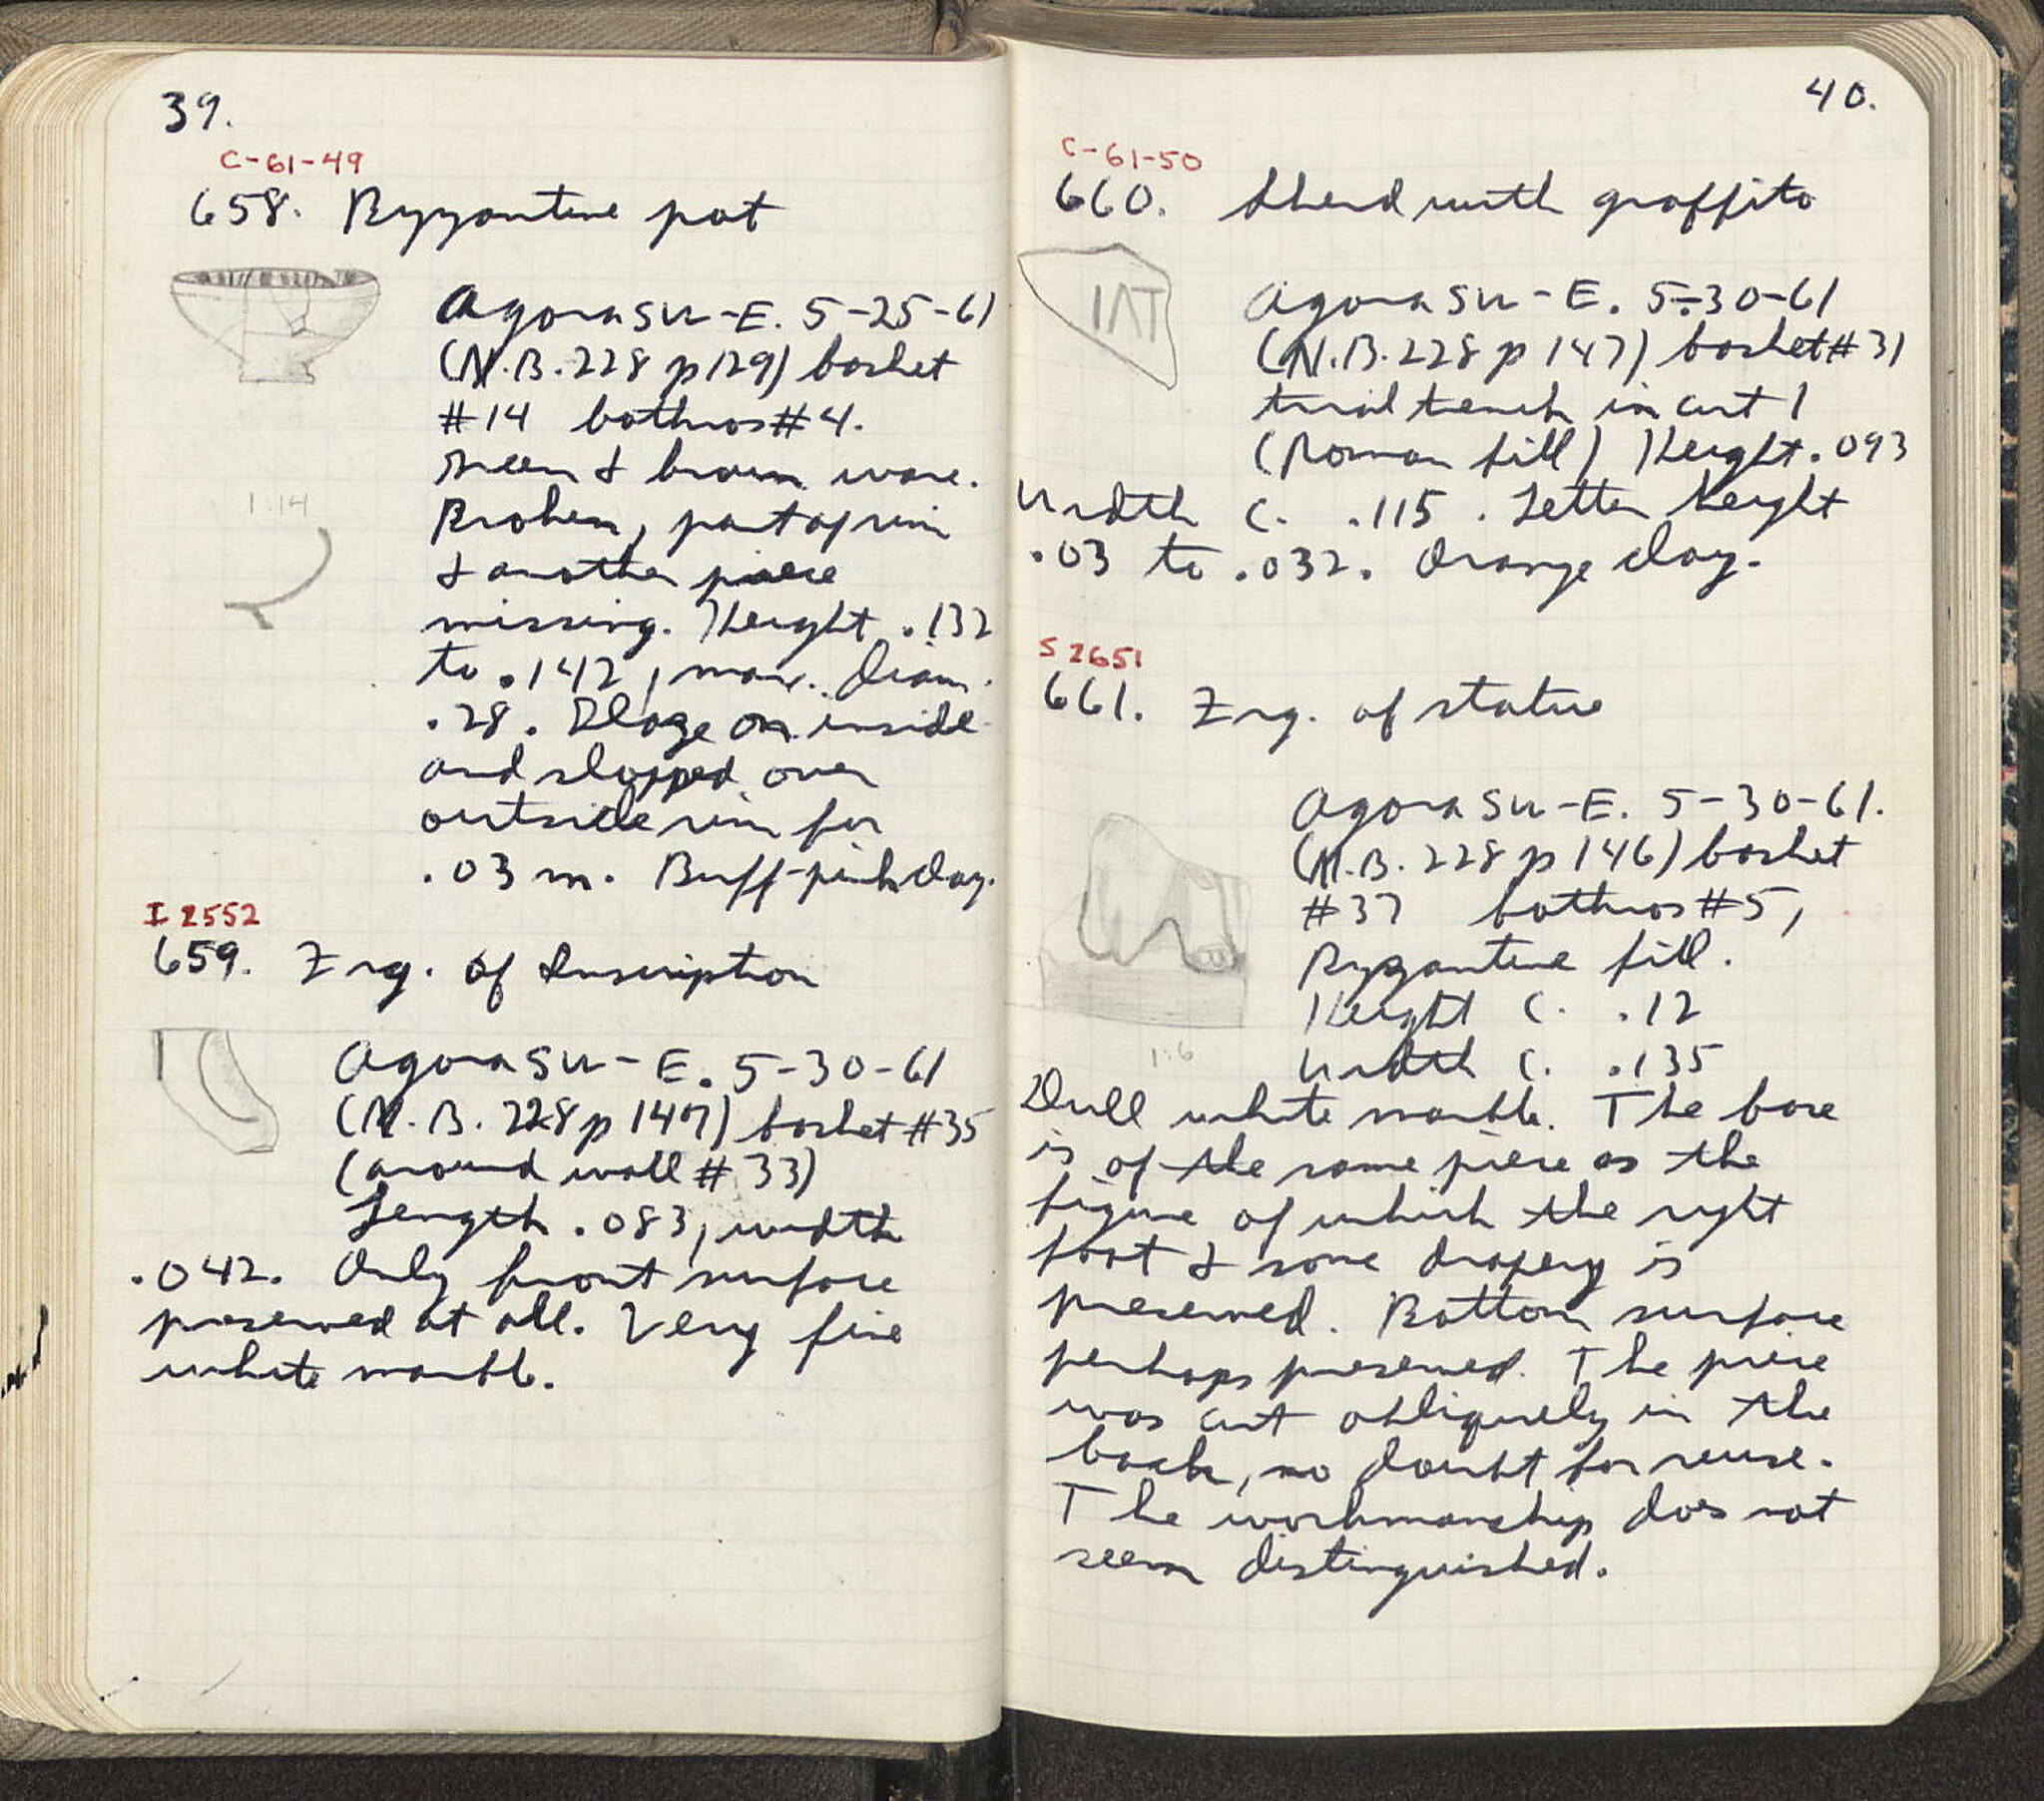 39.
C-61-49
658. Byzantine pot
Agora SW-E. 5-25-61
(N.B. 228 p 129) basket
#14 bothros #4.
Green & brown ware.
1:14
Broken, part of rim
& another piece
missing. Height .132
to .142, max. diam.
.28. Glaze on inside
and slopped over
outside rim for
.03 m. Buff-pink clay.
I 2552
659. Frg. of Inscription
Agora SW-E. 5-30-61
(N.B. 228 p 147) basket #35
(around wall #33)
Length .083, width
.042. Only front surface
preserved at all. Very fine
white marble.
40.
C-61-50
660. Sherd with graffito
ΙΛΤ
Agora SW-E. 5-30-61
(N.B. 228 p 147) basket #31
trial trench in cut 1
(Roman fill) Height .093
Width c. .115. Letter height
.03 to .032. Orange clay.
S 2651
661. Frg. of statue
Agora SW-E. 5-30-61.
(N.B. 228 p 146) basket
#37 bothros #5,
Byzantine fill.
Height c. .12
1:6
Width c. .135
Dull white marble. The base
is of the same piece as the
figure of which the right
foot & some drapery is
preserved. Bottom surface
perhaps preserved. The piece
was cut obliquely in the
back, no doubt for reuse.
The workmanship does not
seem distinguished.